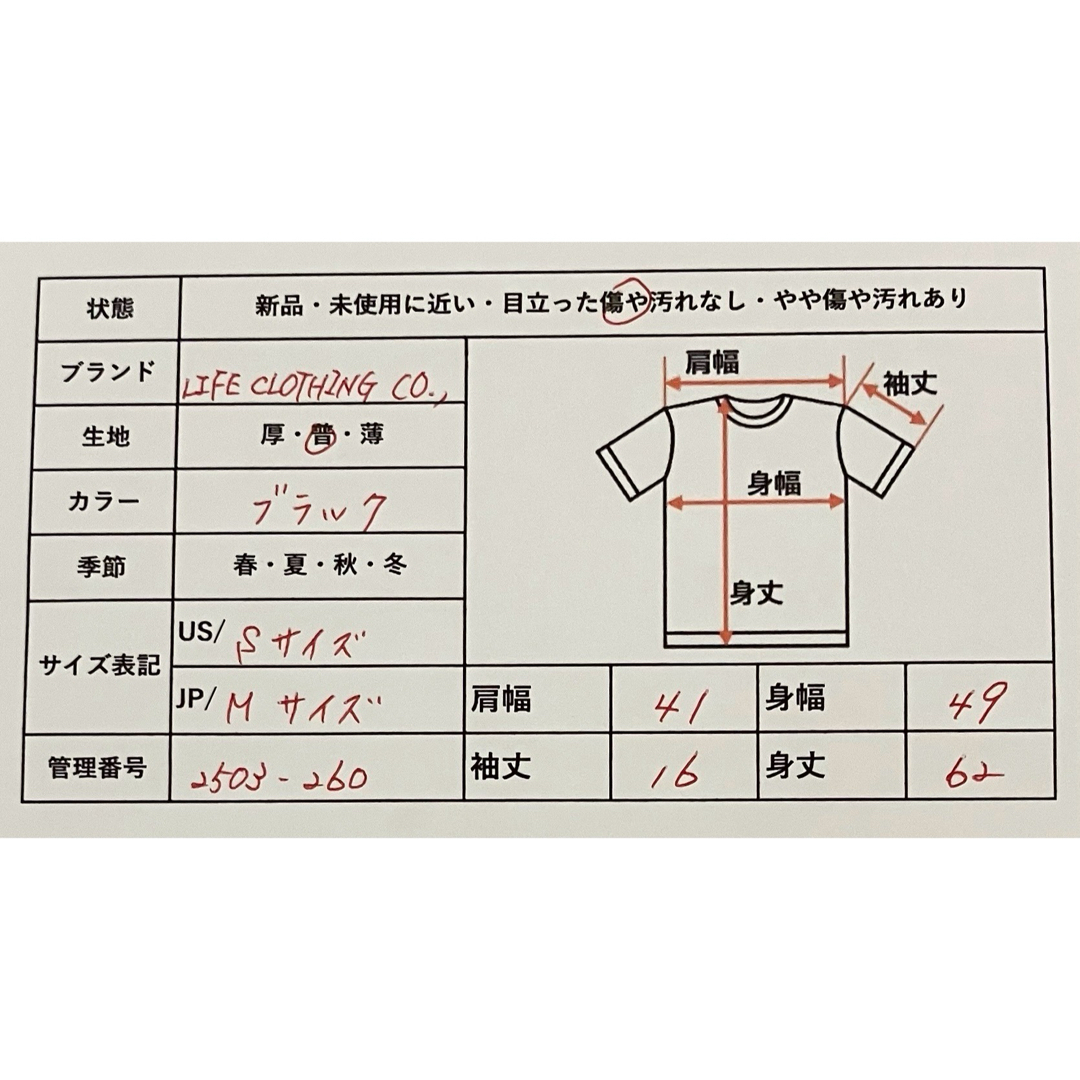 状態 新品・未使用に近い・目立った傷や汚れなし・やや傷や汚れあり
ブランド LIFE CLOTHING CO.,
生地 厚・普・薄
カラー ブラック
季節 春・夏・秋・冬
サイズ表記
US/ Sサイズ
JP/ Mサイズ
管理番号 2503-260
肩幅
袖丈
身幅
身丈
肩幅 41 身幅 49
袖丈 16 身丈 62